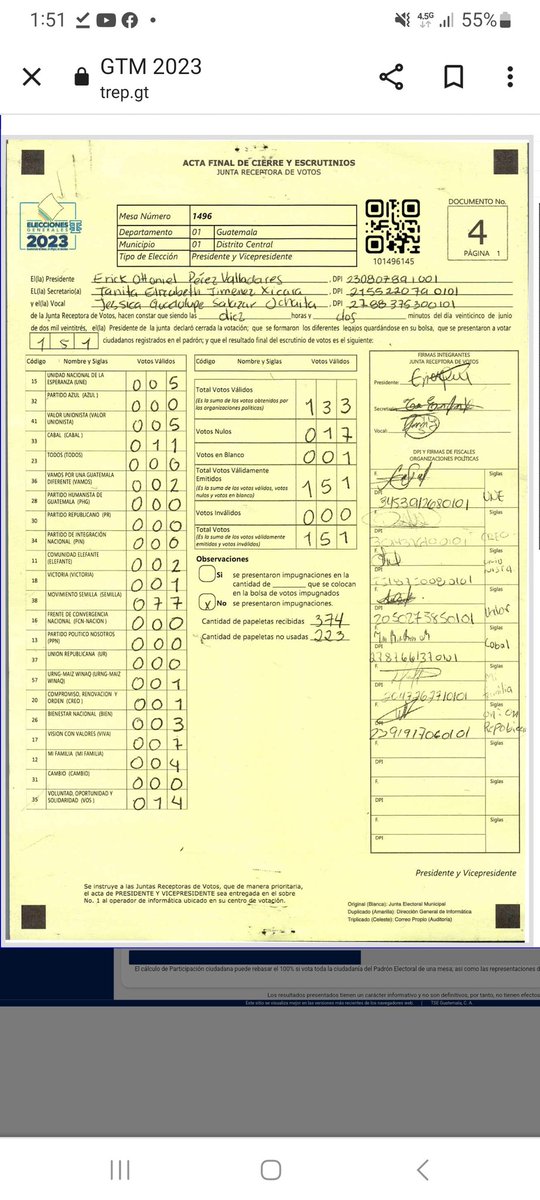 1:51
4.5G
55%
GTM 2023
trep.gt
ACTA FINAL DE CIERRE Y ESCRUTINIOS
JUNTA RECEPTORA DE VOTOS
ELECCIONES
GENERALES
2023
Mesa Número 1496
Departamento 01 Guatemala
Municipio 01 Distrito Central
Tipo de Elección Presidente y Vicepresidente
101496145
DOCUMENTO No.
4
PÁGINA 1
El(la) Presidente Erick Ottoniel Pérez Valladares, DPI 230807891001
El(La) Secretario(a) Elizabeth Jimenez Xicara, DPI 2155220790101
y el(la) Vocal Jessica Guadalupe Salazar, DPI 2788376300101
de la Junta Receptora de Votos, hacen constar que siendo las diez horas y dos minutos del día veinticinco de junio
de dos mil veintitrés, el(la) Presidente de la junta declaró cerrada la votación; que se formaron los diferentes legajos guardándose en su bolsa, que se presentaron a votar
151 ciudadanos registrados en el padrón; y que el resultado final del escrutinio de votos es el siguiente:
Código Nombre y Siglas Votos Válidos
15 UNIDAD NACIONAL DE LA ESPERANZA (UNE) 005
32 PARTIDO AZUL (AZUL) 000
41 VALOR UNIONISTA (VALOR UNIONISTA) 005
33 CABAL (CABAL) 011
23 TODOS (TODOS) 000
36 VAMOS POR UNA GUATEMALA DIFERENTE (VAMOS) 002
28 PARTIDO HUMANISTA DE GUATEMALA (PHG) 000
30 PARTIDO REPUBLICANO (PR) 000
34 PARTIDO DE INTEGRACIÓN NACIONAL (PIN) 000
11 COMUNIDAD ELEFANTE (ELEFANTE) 002
18 VICTORIA (VICTORIA) 001
38 MOVIMIENTO SEMILLA (SEMILLA) 077
16 FRENTE DE CONVERGENCIA NACIONAL (FCN-NACION) 000
13 PARTIDO POLITICO NOSOTROS (PPN) 000
37 UNION REPUBLICANA (UR) 000
57 URNG-MAIZ WINAQ (URNG-MAIZ WINAQ) 001
20 COMPROMISO, RENOVACION Y ORDEN (CREO) 001
26 BIENESTAR NACIONAL (BIEN) 003
17 VISION CON VALORES (VIVA) 007
12 MI FAMILIA (MI FAMILIA) 004
31 CAMBIO (CAMBIO) 000
35 VOLUNTAD, OPORTUNIDAD Y SOLIDARIDAD (VOS) 014
Nombre y Siglas Votos Válidos
Total Votos Válidos 133
(Es la suma de los votos obtenidos por las organizaciones políticas)
Votos Nulos 017
Votos en Blanco 001
Total Votos Válidamente Emitidos 151
(Es la suma de los votos válidos, votos nulos y votos en blanco)
Votos Inválidos 000
Total Votos 151
(Es la suma de los votos válidamente emitidos e inválidos)
Observaciones
Si se presentaron impugnaciones en la cantidad de ______ que se colocan en la bolsa de votos impugnados
X No se presentaron impugnaciones.
Cantidad de papeletas recibidas 374
Cantidad de papeletas no usadas 223
FIRMAS INTEGRANTES
JUNTA RECEPTORA DE VOTOS
Presidente
Secretario
Vocal
DPI Y FIRMAS DE FISCALES
ORGANIZACIONES POLÍTICAS
F. Siglas
DPI 3453912680101 UNE
F. Siglas
DPI
F. Siglas
DPI
F. Siglas
DPI 2050273850101 Valor
F. Siglas
DPI Cabal
F. Siglas
DPI Mi Familia
F. Siglas
DPI 2391917060101
F. Siglas
DPI
F. Siglas
DPI
F. Siglas
DPI
Presidente y Vicepresidente
Se instruye a las Juntas Receptoras de Votos, que de manera prioritaria,
el acta de PRESIDENTE Y VICEPRESIDENTE sea entregada en el sobre
No. 1 al operador de informática ubicado en su centro de votación.
Original (Blanca): Junta Electoral Municipal
Duplicado (Amarilla): Dirección General de Informática
Triplicado (Celeste): Correo Propio (Auditoría)
El cálculo de Participación ciudadana puede rebasar el 100% si vota toda la ciudadanía del Padrón Electoral de una mesa, así como las representaciones d
Los resultados presentados tienen un carácter informativo y no son definitivos, por tanto, no tienen efectos
Este sitio se visualiza mejor en las versiones más recientes de los navegadores web. | TSE Guatemala, C. A.